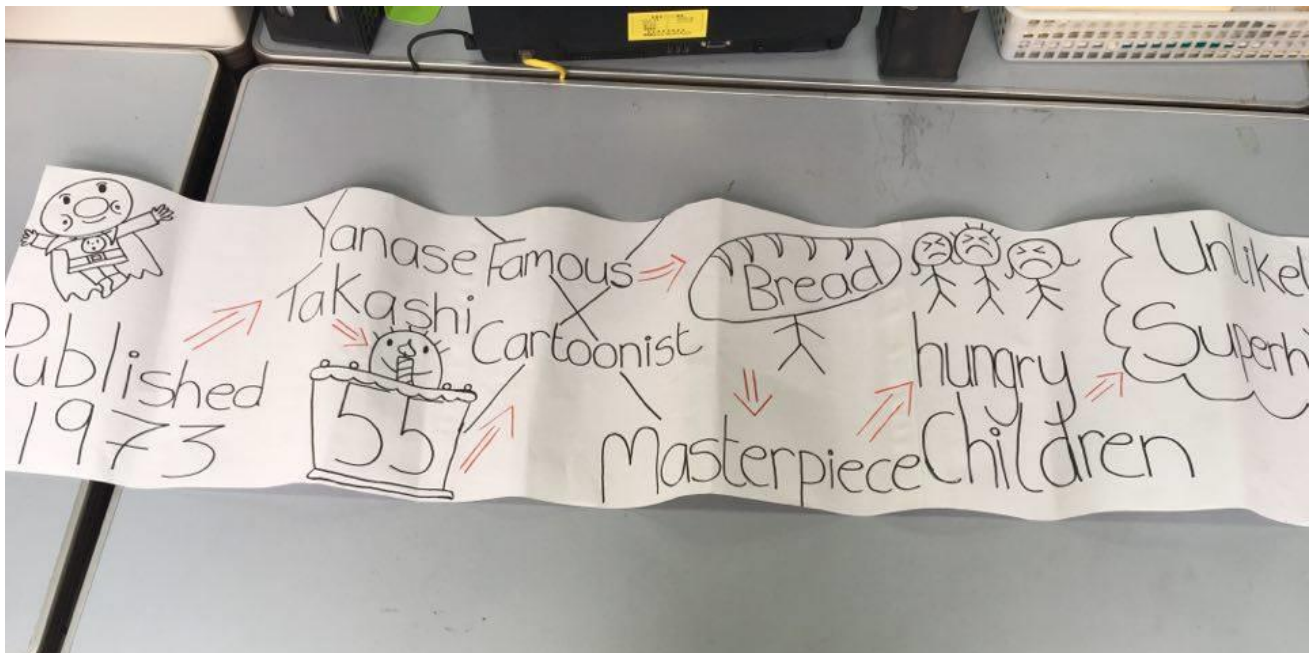 Published
1973
Yanase
Takashi
55
Famous
Cartoonist
Bread
Masterpiece
hungry
Children
Unlikel
Superh